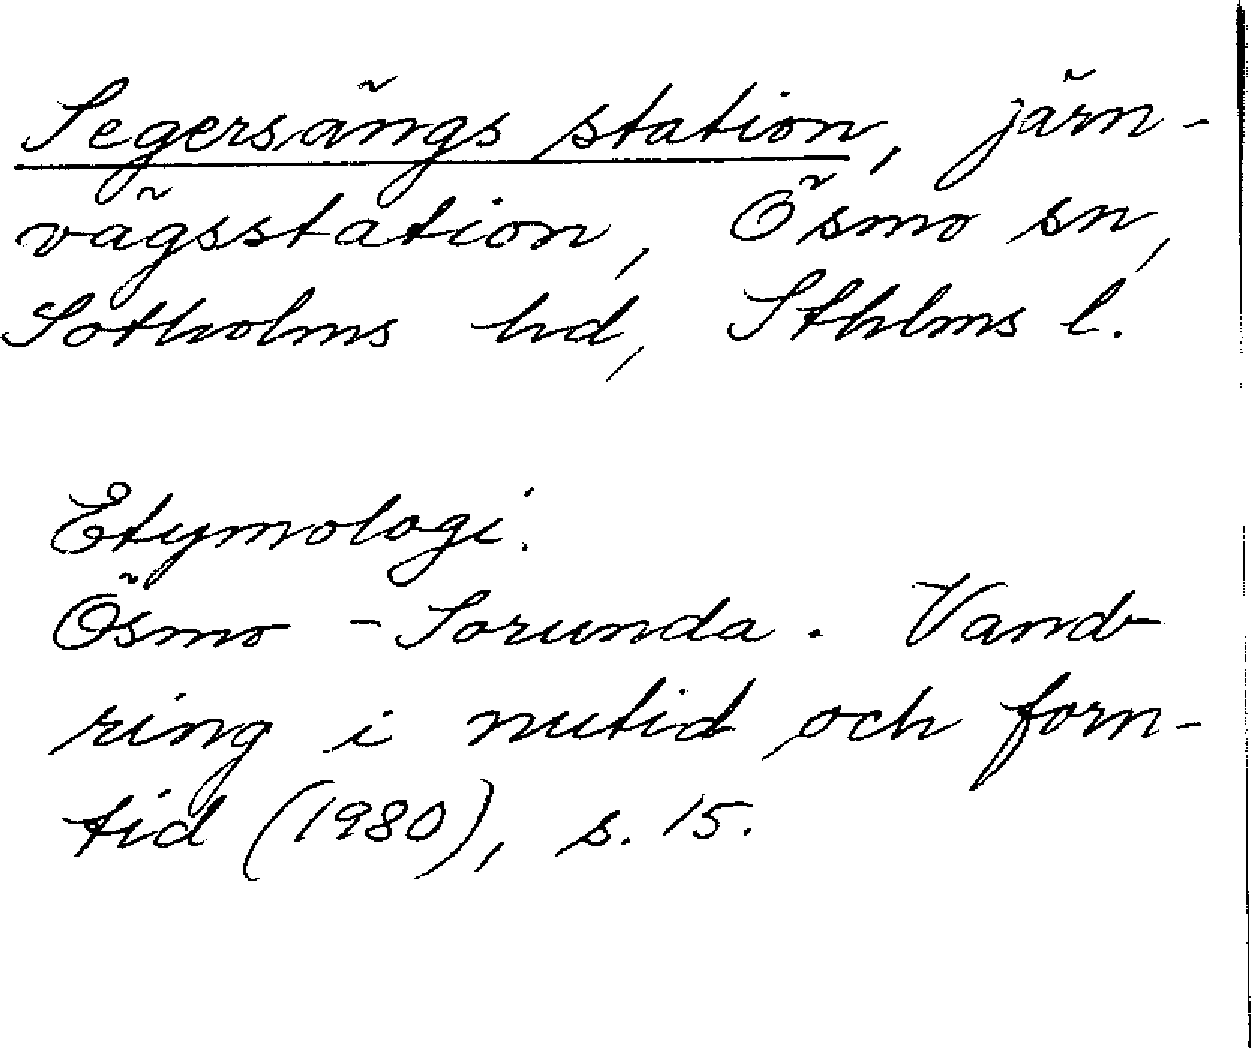 Segersängs station, järn-
vägsstation, Ösmo sn,
Sotholms hd, Sthlms l.
Etymologi.
Ösmo - Sorunda. Vand-
ring i nutid och forn-
tid (1980), s. 15.